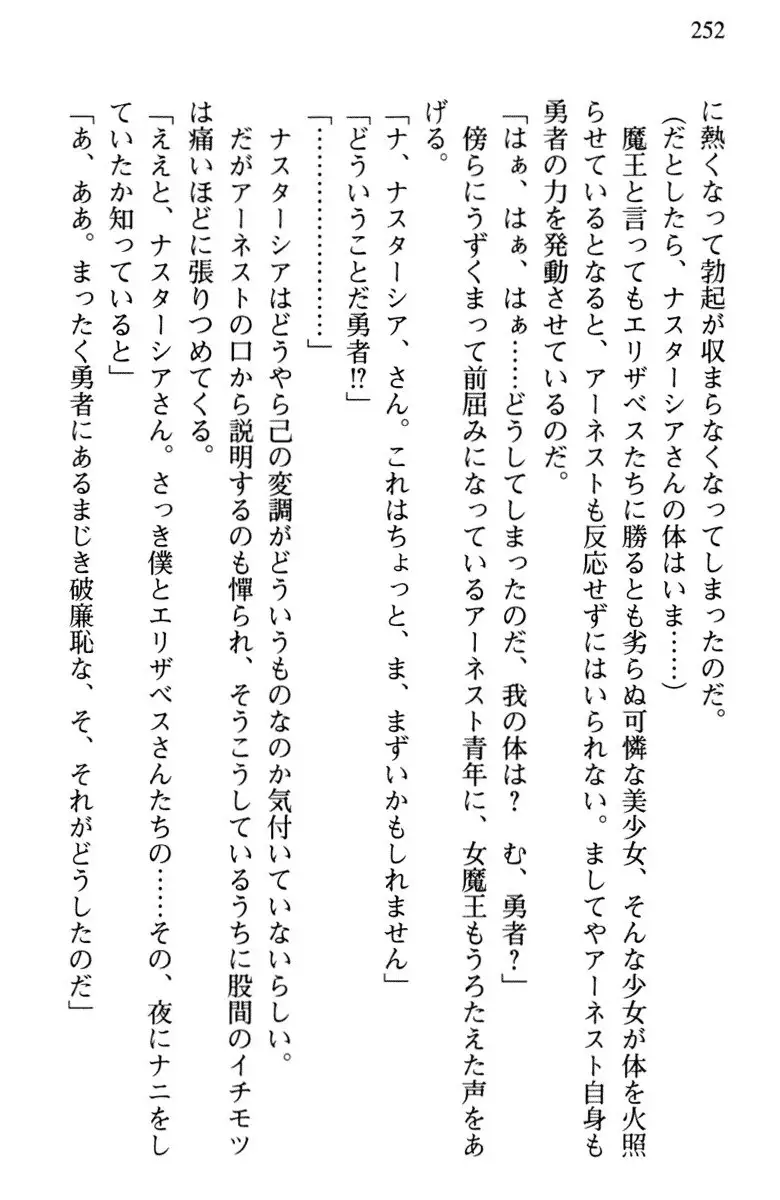 252
に熱くなって勃起が収まらなくなってしまったのだ。
(だとしたら、ナスターシアさんの体はいま……)
　魔王と言ってもエリザベスたちに勝るとも劣らぬ可憐な美少女、そんな少女が体を火照
らせているとなると、アーネストも反応せずにはいられない。ましてやアーネスト自身も
勇者の力を発動させているのだ。
「はぁ、はぁ、はぁ……どうしてしまったのだ、我の体は?　む、勇者?」
　傍らにうずくまって前屈みになっているアーネスト青年に、女魔王もうろたえた声をあ
げる。
「ナ、ナスターシア、さん。これはちょっと、ま、まずいかもしれません」
「どういうことだ勇者!?」
「…………………」
　ナスターシアはどうやら己の変調がどういうものなのか気付いていないらしい。
　だがアーネストの口から説明するのも憚られ、そうこうしているうちに股間のイチモツ
は痛いほどに張りつめてくる。
「ええと、ナスターシアさん。さっき僕とエリザベスさんたちの……その、夜にナニをし
ていたか知っていると」
「あ、ああ。まったく勇者にあるまじき破廉恥な、そ、それがどうしたのだ」